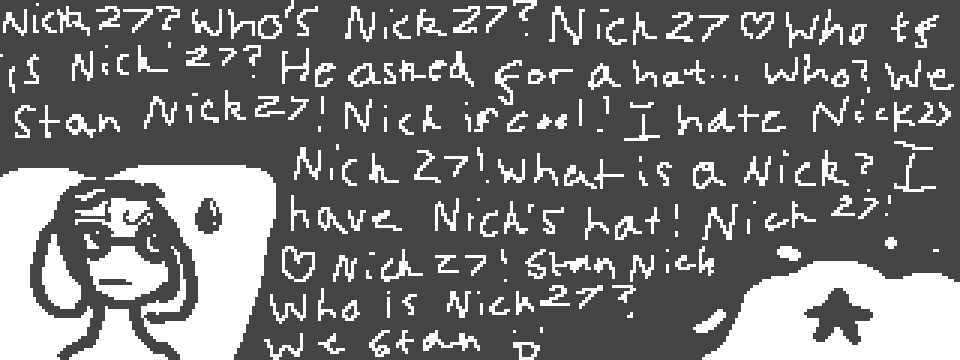 Nick 27? Who's Nick 27? Nick 27 ♡ Who is
is Nick 27? He asked for a hat... Who? We
Stan Nick 27! Nick is cool! I hate Nick 27
Nick 27! What is a Nick? I
have Nick's hat! Nick 27!
♡ Nick 27! Stan Nick
Who is Nick 27?
We stan